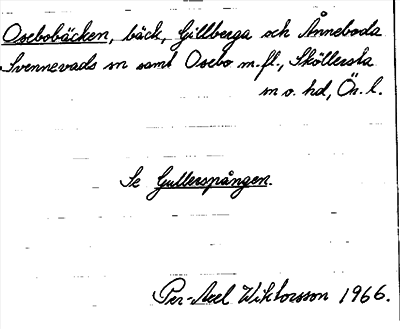 Osebobäcken, bäck, Gillberga och Ånneboda
Svennevads sn samt Osebo m.fl., Sköllersta
sn o. hd, Ör. l.
Se Gullerspången.
Per-Axel Wiktorsson 1966.